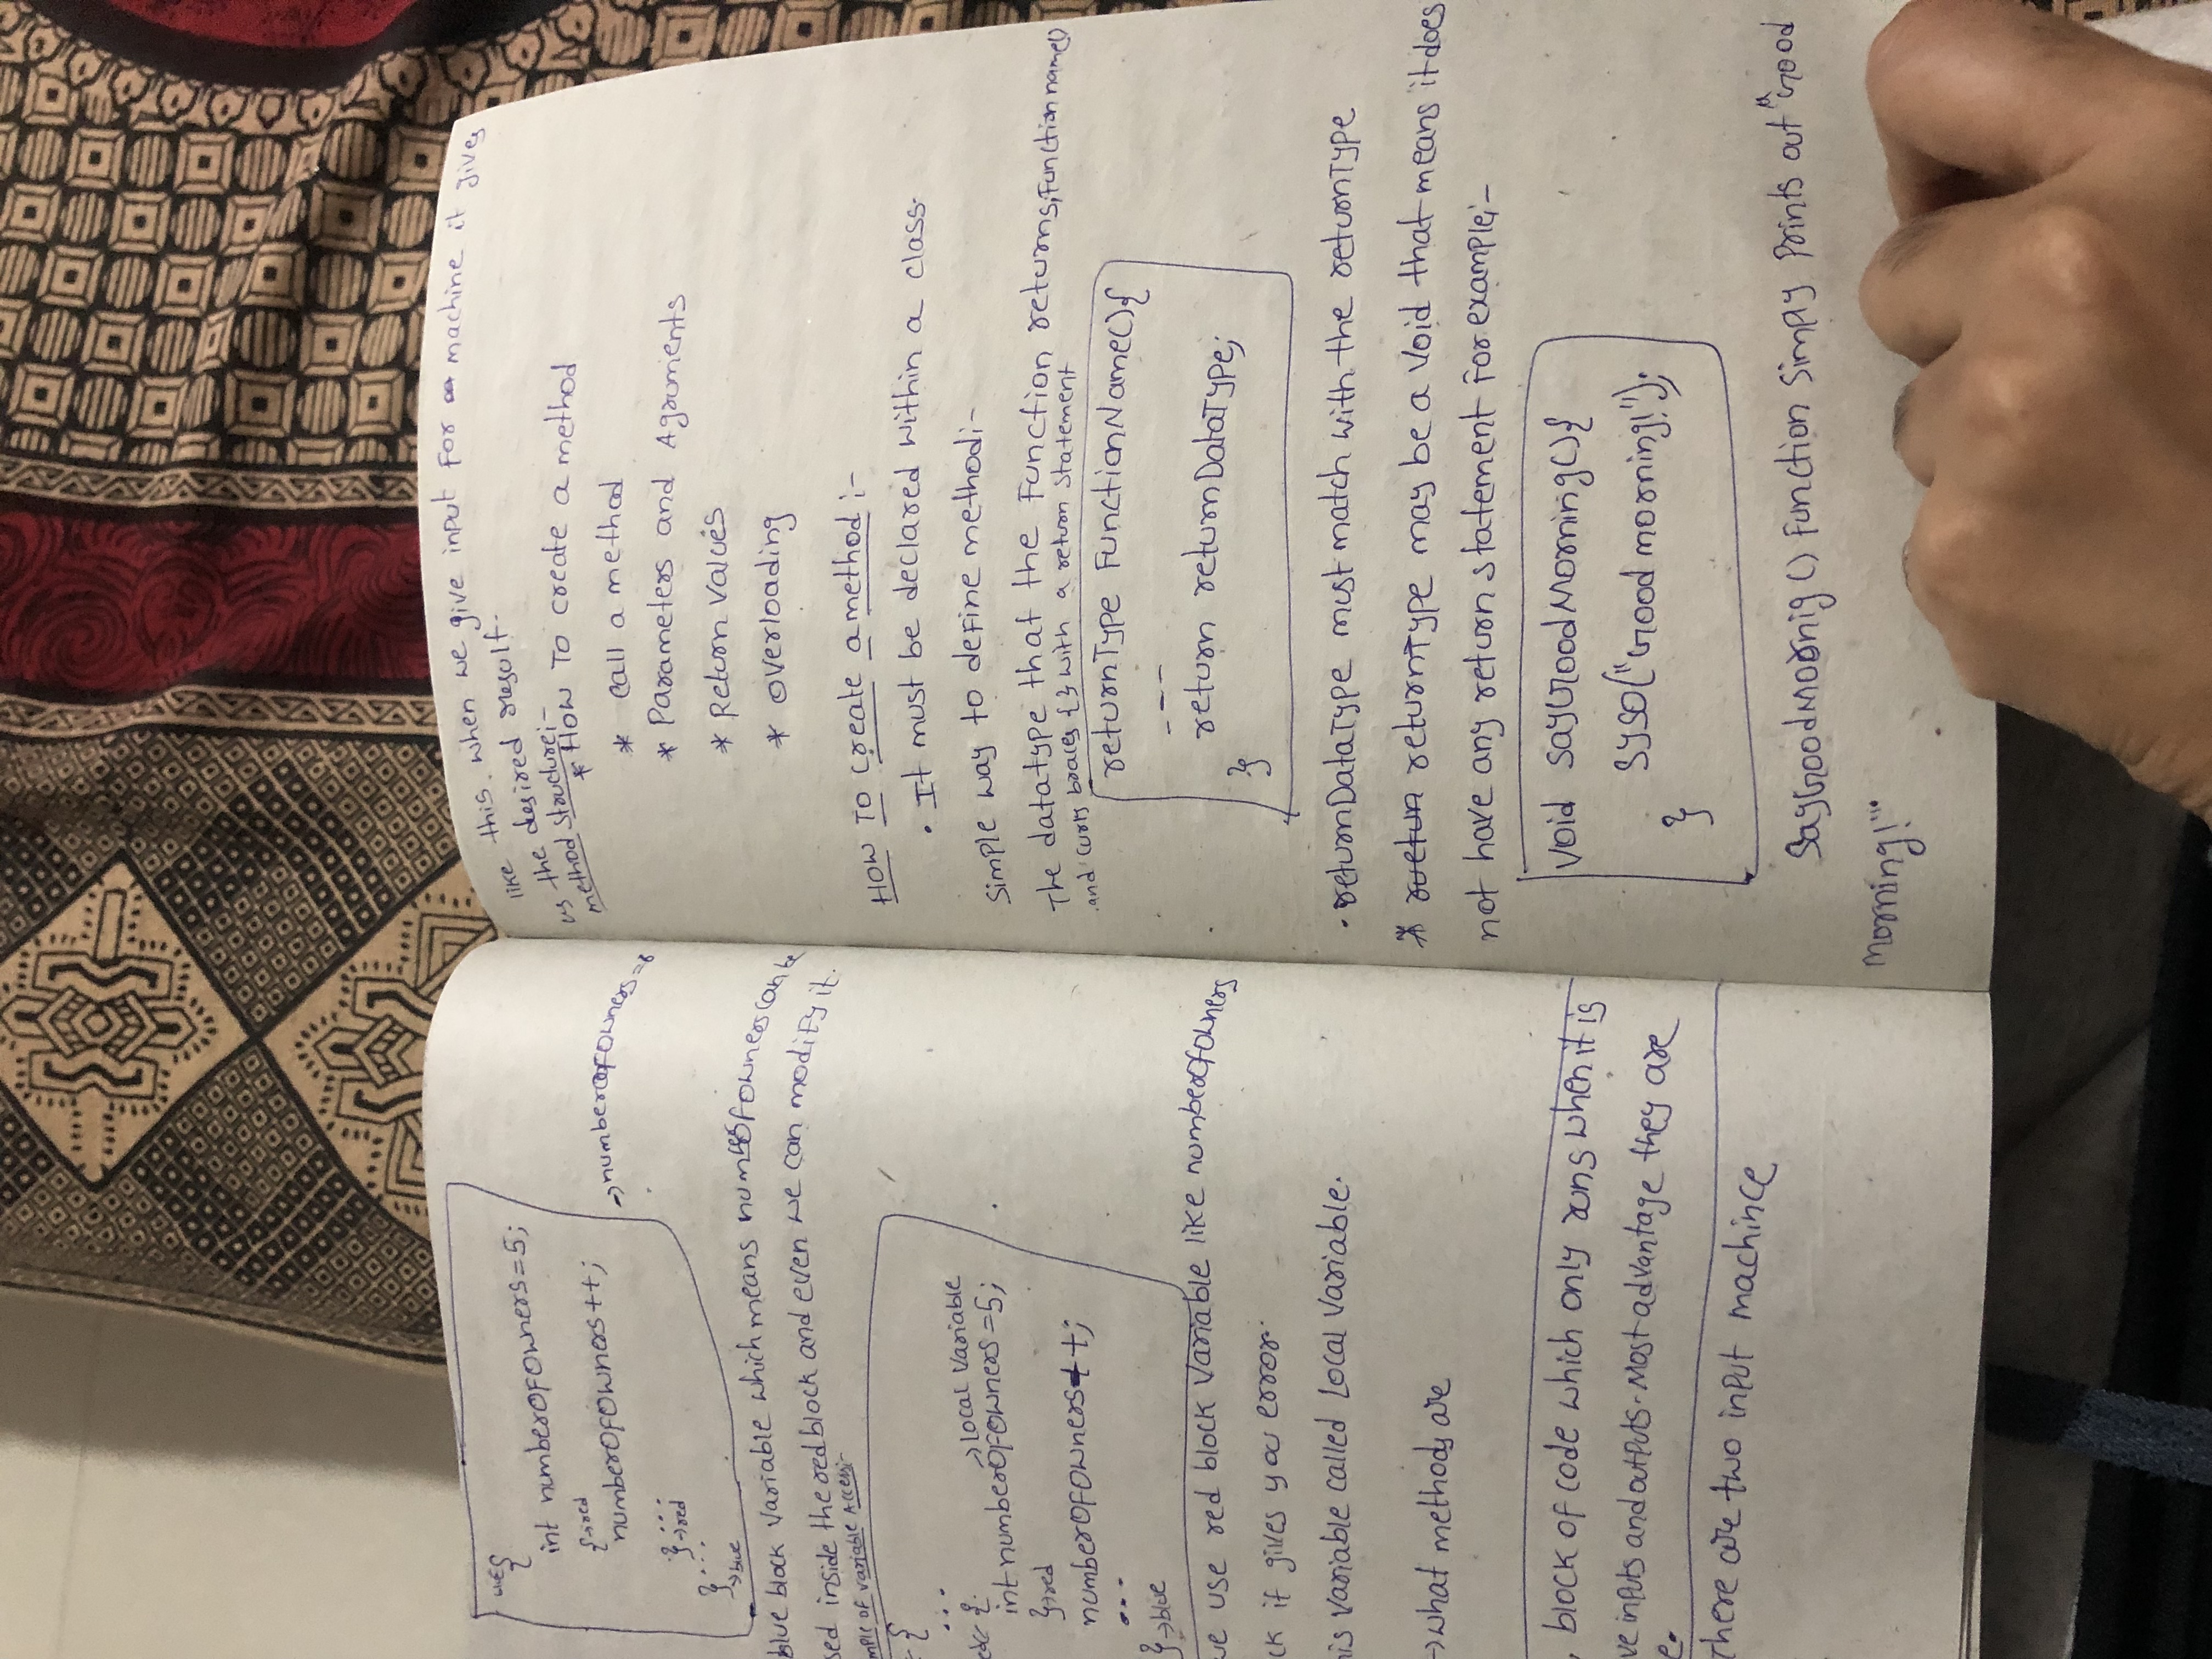 {
int numberOfOwners=5;
{→red
numberOfOwners++;
...
}→red
...
}→blue
→numberOfOwners=6
blue block variable which means numberOfOwners can be
sed inside the red block and even we can modify it.
mple of variable Access:-
{
...
{
→Local variable
int numberOfOwners=5;
}→red
numberOfOwners++;
...
}→blue
ve use red block variable like numberOfOwners
ck it gives you error.
his variable called Local variable.
→what methods are
block of code which only runs when it is
ve inputs and outputs. Most advantage they are
e.
There are two input machince
like this. when we give input for machine it gives
us the desired result.
method structure:-
* How To create a method
* call a method
* Parameters and Agruments
* Return values
* overloading
How To create a method :-
• It must be declared within a class.
simple way to define method:-
The datatype that the function returns, function name()
and curly braces { } with a return statement
returnType FunctionName(){
---
return returnDataType;
}
• returnDataType must match with the returnType
* returnType may be a void that means it does
not have any return statement For example:-
void sayGoodMorning(){
syso("Good morning!");
}
SayGoodMornig() function simply prints out "Good
morning!".